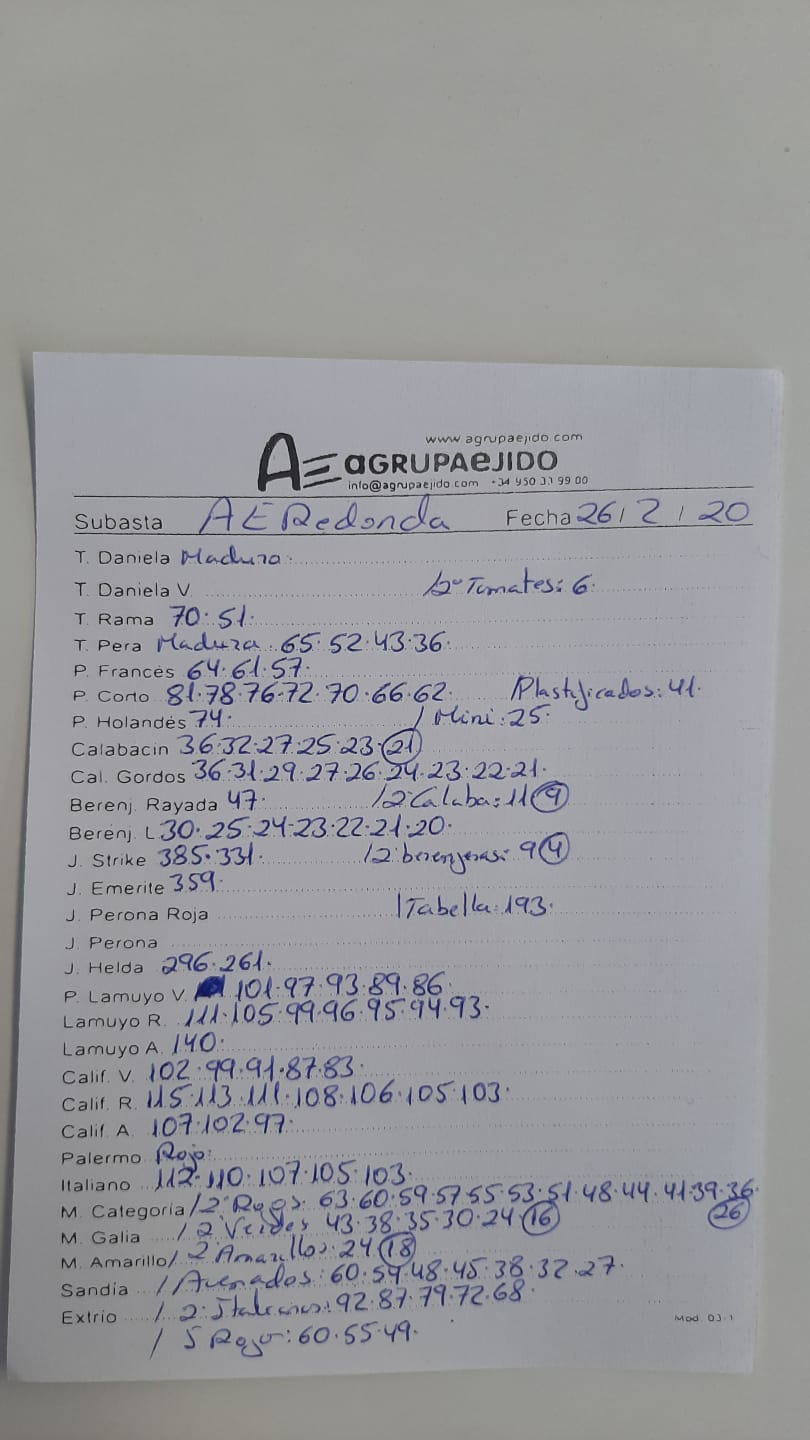 www agrupaejido com
AE aGRUPAeJIDO
info@agrupaejido.com +34 950 33 99 00
Subasta AE Redonda Fecha 26/2/20
T. Daniela Madura.
T. Daniela V. /2ª Tomates: 6.
T. Rama 70.51.
T. Pera Madura. 65.52.43.36.
P. Francés 64.61.57.
P. Corto 81.78.76.72.70.66.62. /Plastificados: 41.
P. Holandés 74. / Mini: 25.
Calabacin 36.32.27.25.23.21
Cal. Gordos 36.31.29.27.26.24.23.22.21.
Berenj. Rayada 47. /2ªCalaba: 11 9
Berenj. L 30.25.24-23.22.21.20.
J. Strike 385.331. /2ª berenjenas: 9 4
J. Emerite 359.
J. Perona Roja /Tabella: 193.
J. Perona
J. Helda 296.261.
P. Lamuyo V. 101.97.93.89.86.
Lamuyo R. 111.105.99.96.95.94.93.
Lamuyo A. 140.
Calif. V. 102.99.91.87.83.
Calif. R. 115.113.111.108.106.105.103.
Calif. A. 107.102.97.
Palermo Rojo:
Italiano 112.110.107.105.103.
M. Categoría /2ª Rojos. 63.60.59.57.55.53.51.48.44.41.39.36. 26
M. Galia /2ª Verdes 43.38.35.30.24.16
M. Amarillo /2ª Amarillos. 24.18
Sandía //Asenados: 60.54.48.45.38.32.27.
Extrio / 2ª Italianos: 92.87.79.72.68.
/ 5 Rojo: 60.55.49.
Mod. 03.1